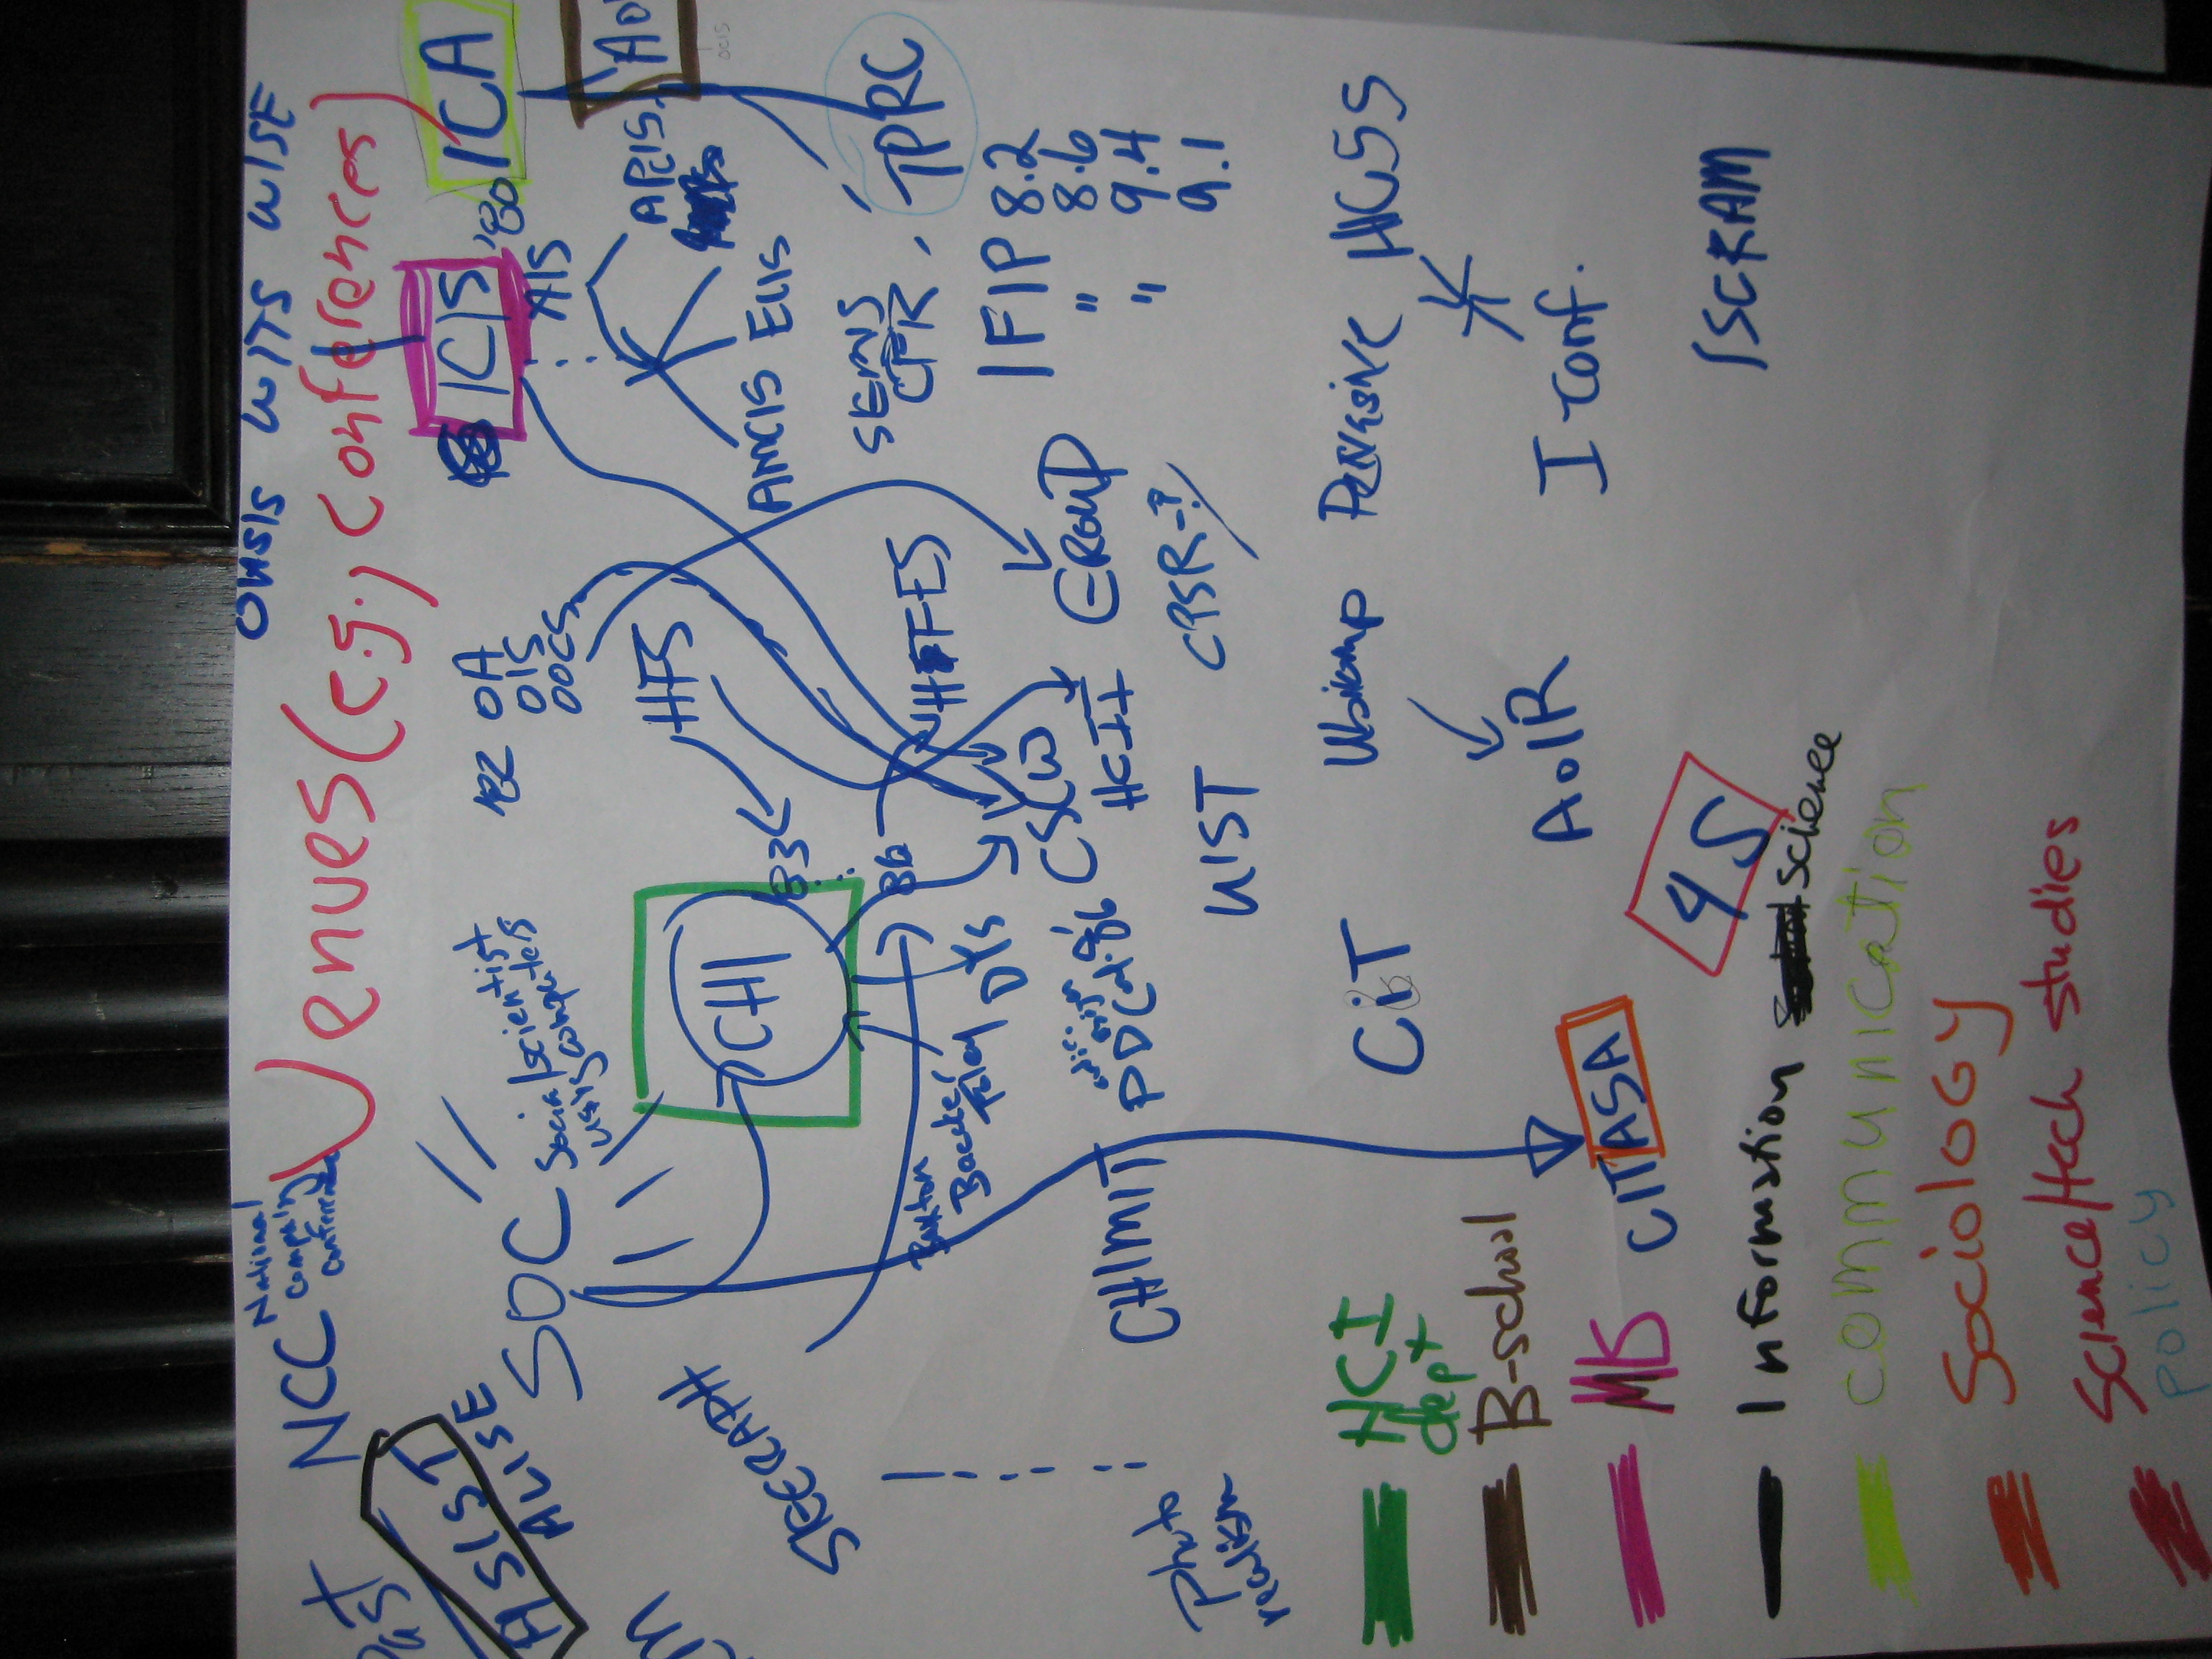 OHSIS WITS WISE
NCC National
Venues (e.g., conferences)
ICIS '80
ICA
AIS
ASIST
ALISE
'82 OA
OIS
OOCS
SOC
social scientist
using computers
HFS
APCIS
AMCIS ECIS
CHI
83
86
HFES
SEMS
CFR
TPRC
OCIS
Buxton
DIS
CSCW
GROUP
HCII
IFIP 8.2
" 8.6
9.4
" 9.1
CHIMIT
PDC
UIST
CPSR-?
Photo
realism
CiT
Ubicomp
HCSS
AoIR
I Conf.
CITASA
4S
ISCRAM
HCI
dept
B-school
Information science
communication
Sociology
Science/tech studies
policy